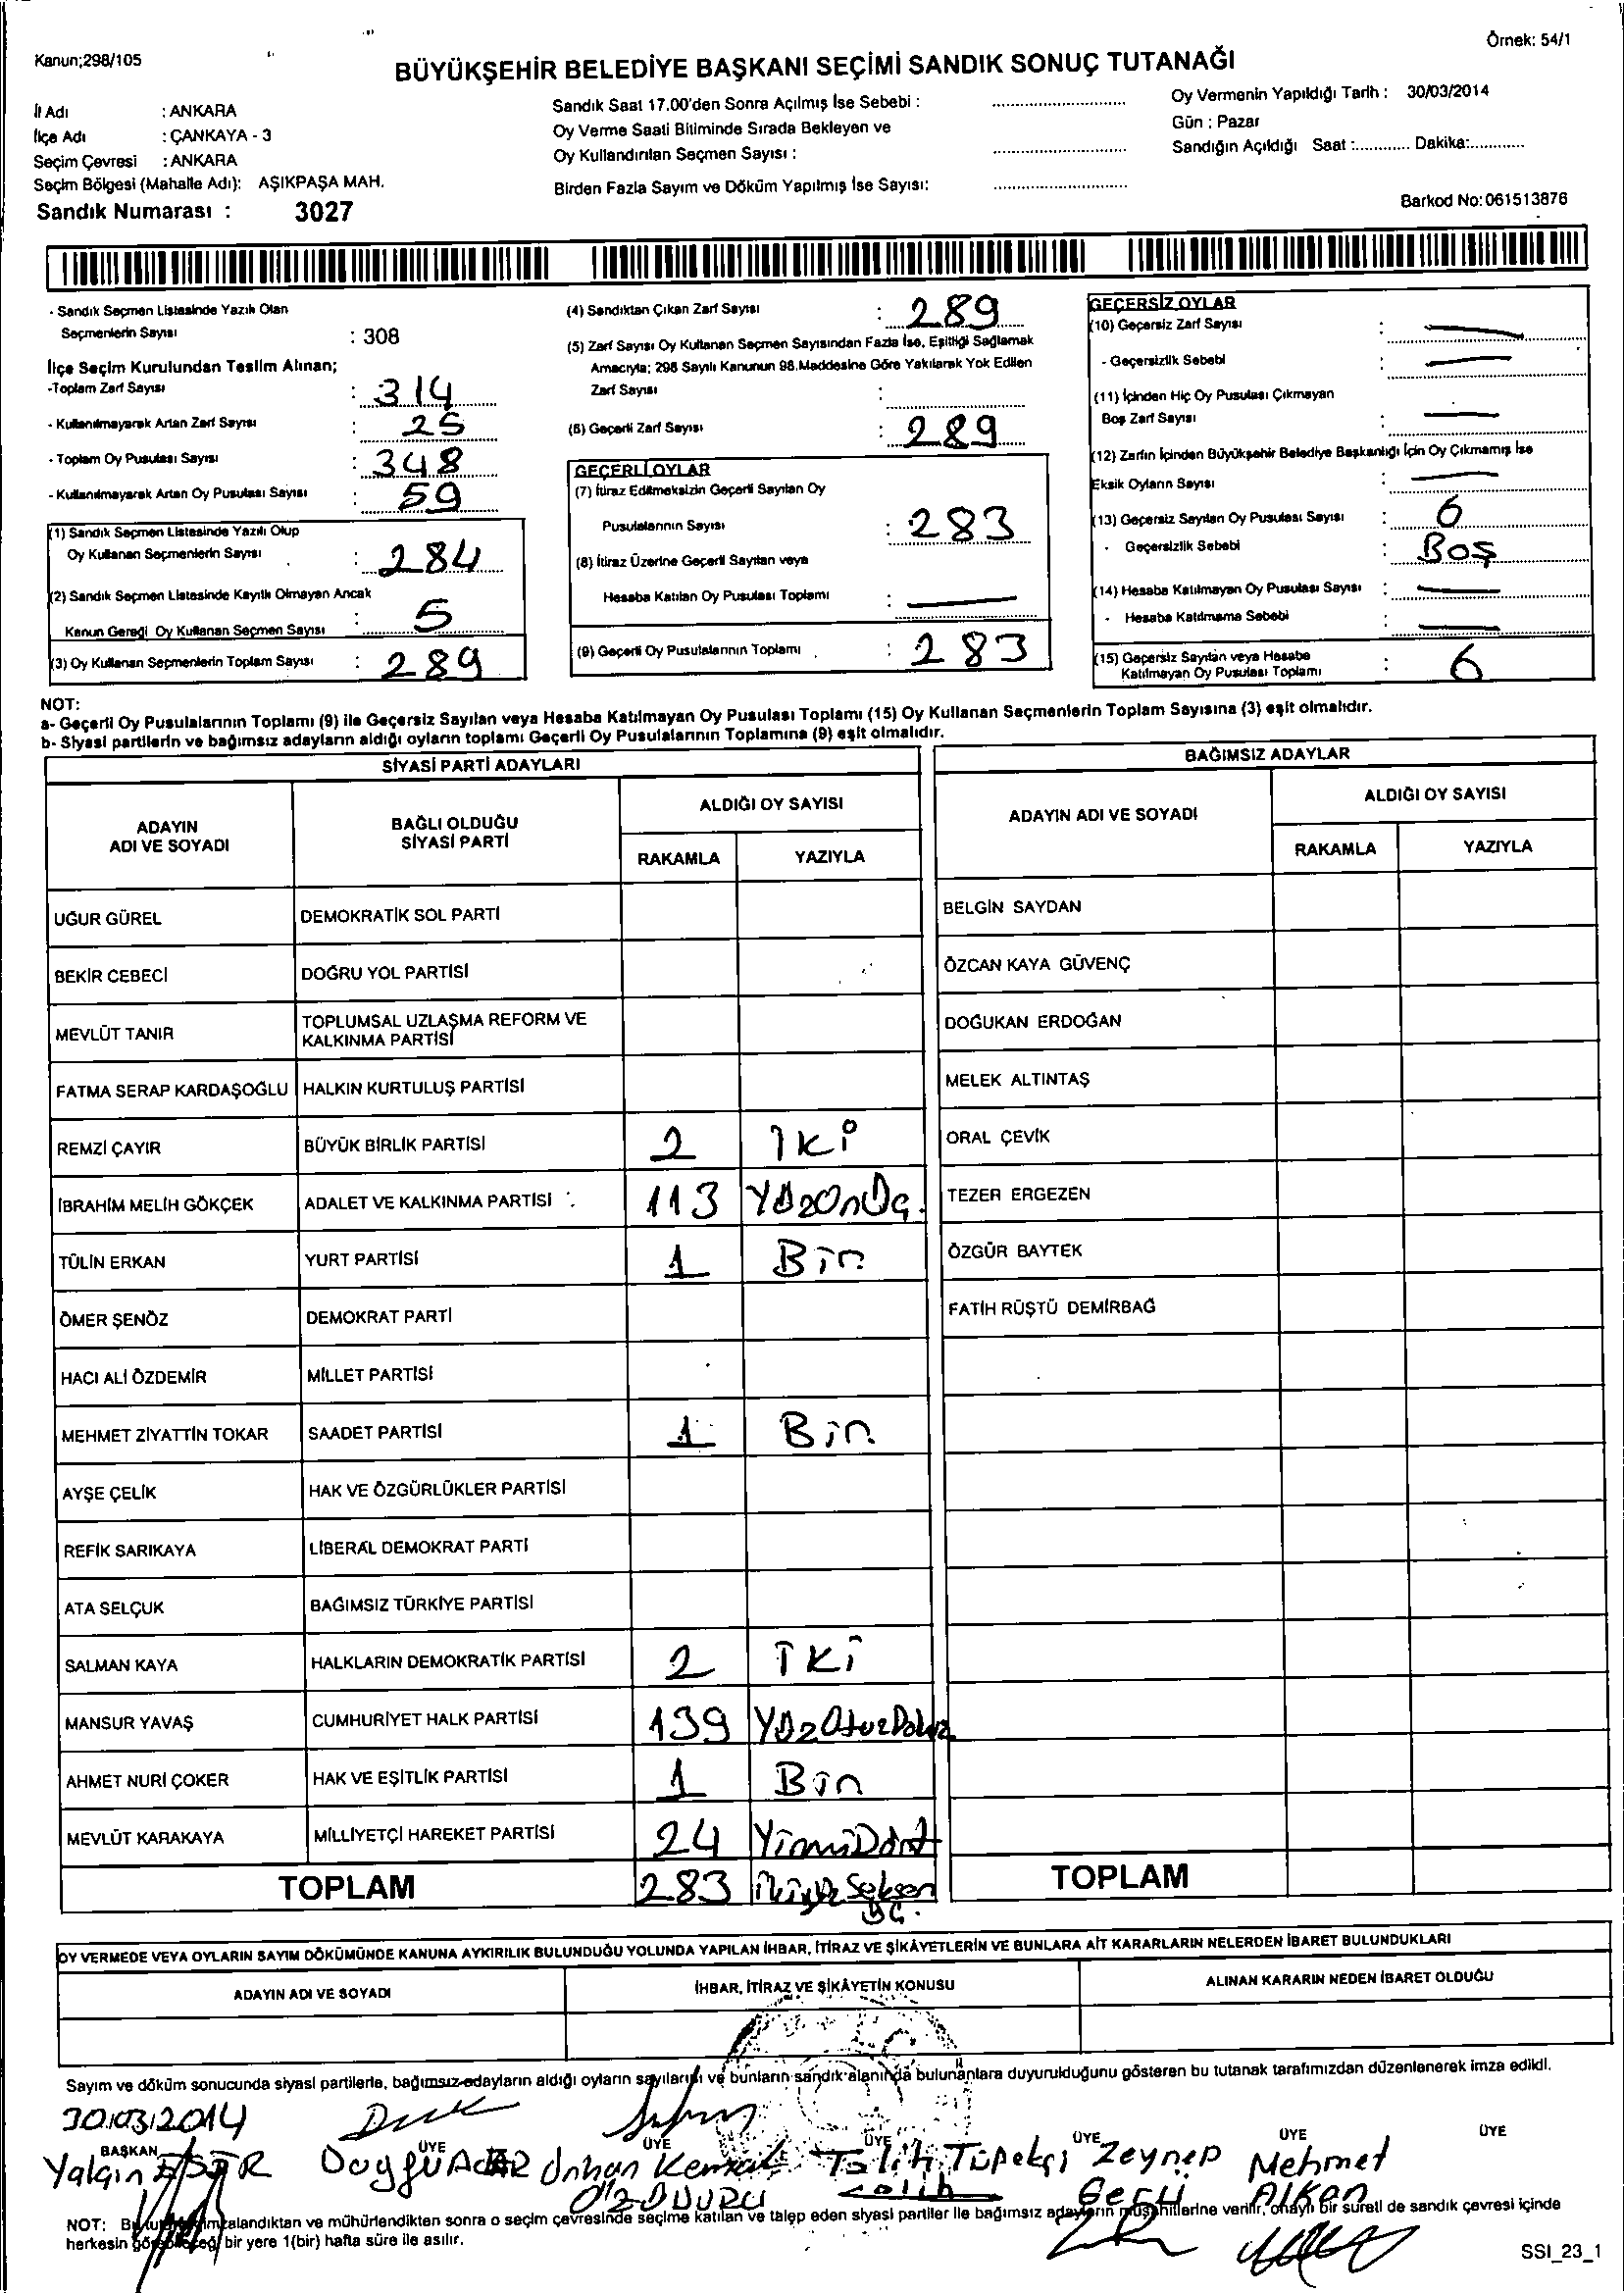 Kanun;298/105
Örnek: 54/1
BÜYÜKŞEHİR BELEDİYE BAŞKANI SEÇİMİ SANDIK SONUÇ TUTANAĞI
İl Adı : ANKARA
İlçe Adı : ÇANKAYA - 3
Seçim Çevresi : ANKARA
Seçim Bölgesi (Mahalle Adı): AŞIKPAŞA MAH.
Sandık Numarası : 3027
Sandık Saat 17.00'den Sonra Açılmış İse Sebebi :
Oy Verme Saati Bitiminde Sırada Bekleyen ve
Oy Kullandırılan Seçmen Sayısı :
Birden Fazla Sayım ve Döküm Yapılmış İse Sayısı:
Oy Vermenin Yapıldığı Tarih : 30/03/2014
Gün : Pazar
Sandığın Açıldığı Saat :............ Dakika:............
Barkod No:061513876
- Sandık Seçmen Listesinde Yazılı Olan
Seçmenlerin Sayısı : 308
İlçe Seçim Kurulundan Teslim Alınan;
-Toplam Zarf Sayısı : 314
- Kullanılmayarak Artan Zarf Sayısı : 25
- Toplam Oy Pusulası Sayısı : 348
- Kullanılmayarak Artan Oy Pusulası Sayısı : 59
(1) Sandık Seçmen Listesinde Yazılı Olup
Oy Kullanan Seçmenlerin Sayısı : 284
(2) Sandık Seçmen Listesinde Kayıtlı Olmayan Ancak
Kanun Gereği Oy Kullanan Seçmen Sayısı : 5
(3) Oy Kullanan Seçmenlerin Toplam Sayısı : 289
(4) Sandıktan Çıkan Zarf Sayısı : 289
(5) Zarf Sayısı Oy Kullanan Seçmen Sayısından Fazla İse, Eşitliği Sağlamak
Amacıyla; 298 Sayılı Kanunun 98.Maddesine Göre Yakılarak Yok Edilen
Zarf Sayısı :
(6) Geçerli Zarf Sayısı : 289
GEÇERLİ OYLAR
(7) İtiraz Edilmeksizin Geçerli Sayılan Oy
Pusulalarının Sayısı : 283
(8) İtiraz Üzerine Geçerli Sayılan veya
Hesaba Katılan Oy Pusulası Toplamı : —
(9) Geçerli Oy Pusulalarının Toplamı : 283
GEÇERSİZ OYLAR
(10) Geçersiz Zarf Sayısı : —
- Geçersizlik Sebebi : —
(11) İçinden Hiç Oy Pusulası Çıkmayan
Boş Zarf Sayısı : —
(12) Zarfın İçinden Büyükşehir Belediye Başkanlığı İçin Oy Çıkmamış İse
Eksik Oyların Sayısı : —
(13) Geçersiz Sayılan Oy Pusulası Sayısı : 6
- Geçersizlik Sebebi : BOŞ
(14) Hesaba Katılmayan Oy Pusulası Sayısı : —
- Hesaba Katılmama Sebebi : —
(15) Geçersiz Sayılan veya Hesaba
Katılmayan Oy Pusulası Toplamı : 6
NOT:
a- Geçerli Oy Pusulalarının Toplamı (9) ile Geçersiz Sayılan veya Hesaba Katılmayan Oy Pusulası Toplamı (15) Oy Kullanan Seçmenlerin Toplam Sayısına (3) eşit olmalıdır.
b- Siyasi partilerin ve bağımsız adayların aldığı oyların toplamı Geçerli Oy Pusulalarının Toplamına (9) eşit olmalıdır.
SİYASİ PARTİ ADAYLARI
ADAYIN ADI VE SOYADI
BAĞLI OLDUĞU SİYASİ PARTİ
ALDIĞI OY SAYISI
RAKAMLA YAZIYLA
UĞUR GÜREL DEMOKRATİK SOL PARTİ
BEKİR CEBECİ DOĞRU YOL PARTİSİ
MEVLÜT TANIR TOPLUMSAL UZLAŞMA REFORM VE KALKINMA PARTİSİ
FATMA SERAP KARDAŞOĞLU HALKIN KURTULUŞ PARTİSİ
REMZİ ÇAYIR BÜYÜK BİRLİK PARTİSİ 2 İki
İBRAHİM MELİH GÖKÇEK ADALET VE KALKINMA PARTİSİ 113 YÜzOnÜç.
TÜLİN ERKAN YURT PARTİSİ 1 Bir
ÖMER ŞENÖZ DEMOKRAT PARTİ
HACI ALİ ÖZDEMİR MİLLET PARTİSİ
MEHMET ZİYATTİN TOKAR SAADET PARTİSİ 1 Bir
AYŞE ÇELİK HAK VE ÖZGÜRLÜKLER PARTİSİ
REFİK SARIKAYA LİBERAL DEMOKRAT PARTİ
ATA SELÇUK BAĞIMSIZ TÜRKİYE PARTİSİ
SALMAN KAYA HALKLARIN DEMOKRATİK PARTİSİ 2 İki
MANSUR YAVAŞ CUMHURİYET HALK PARTİSİ 139 YÜzOtuzDokuz
AHMET NURİ ÇOKER HAK VE EŞİTLİK PARTİSİ 1 Bir
MEVLÜT KARAKAYA MİLLİYETÇİ HAREKET PARTİSİ 24 YirmiDört
TOPLAM 283 İkiyüzSeksen Üç.
BAĞIMSIZ ADAYLAR
ADAYIN ADI VE SOYADI
ALDIĞI OY SAYISI
RAKAMLA YAZIYLA
BELGİN SAYDAN
ÖZCAN KAYA GÜVENÇ
DOĞUKAN ERDOĞAN
MELEK ALTINTAŞ
ORAL ÇEVİK
TEZER ERGEZEN
ÖZGÜR BAYTEK
FATİH RÜŞTÜ DEMİRBAĞ
TOPLAM
OY VERMEDE VEYA OYLARIN SAYIM DÖKÜMÜNDE KANUNA AYKIRILIK BULUNDUĞU YOLUNDA YAPILAN İHBAR, İTİRAZ VE ŞİKÂYETLERİN VE BUNLARA AİT KARARLARIN NELERDEN İBARET BULUNDUKLARI
ADAYIN ADI VE SOYADI
İHBAR, İTİRAZ VE ŞİKÂYETİN KONUSU
ALINAN KARARIN NEDEN İBARET OLDUĞU
Sayım ve döküm sonucunda siyasi partilerle, bağımsız adayların aldığı oyların sayılarını ve bunların sandık alanında bulunanlara duyurulduğunu gösteren bu tutanak tarafımızdan düzenlenerek imza edildi.
30/03/2014
BAŞKAN ÜYE ÜYE ÜYE ÜYE ÜYE ÜYE
Yalçın Orhan Kemal Talih Tüpekçi Zeynep Mehmet
NOT: Bu tutanak imzalandıktan ve mühürlendikten sonra o seçim çevresinde seçime katılan ve talep eden siyasi partiler ile bağımsız adayların müşahitlerine verilir, onaylı bir sureti de sandık çevresi içinde
herkesin görebileceği bir yere 1(bir) hafta süre ile asılır.
SSI_23_1